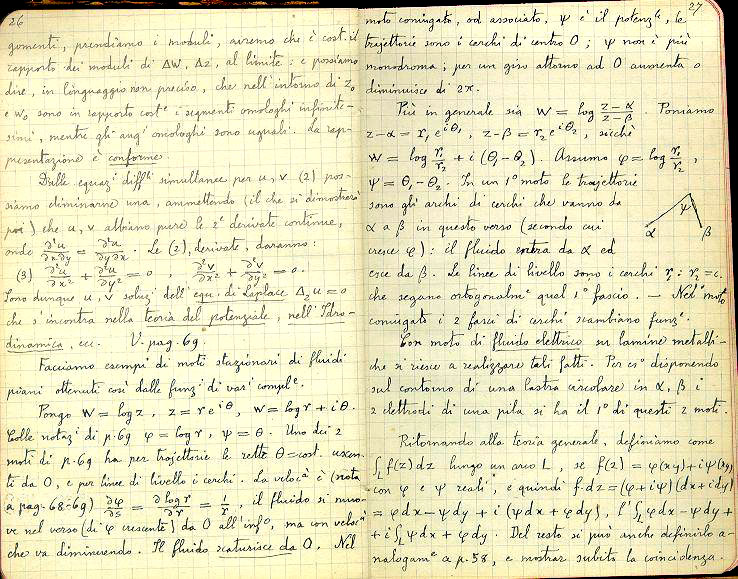 26
gomenti, prendiamo i moduli, avremo che è cost. il
rapporto dei moduli di ΔW, Δz, al limite: e possiamo
dire, in linguaggio non preciso, che nell'intorno di z₀
e w₀ sono in rapporto costᵉ i segmenti omologhi infinite-
simi, mentre gli angⁱ omologhi sono uguali. La rap-
presentazione è conforme.
Dalle equazⁱ diffˡⁱ simultanee per u, v (2) pos-
siamo eliminarne una, ammettendo (il che si dimostrerà
poi) che u, v abbiano pure le 2ᵉ derivate continue,
onde ∂²u/∂x∂y = ∂²u/∂y∂x. Le (2), derivate, daranno:
(3) ∂²u/∂x² + ∂²u/∂y² = 0 , ∂²v/∂x² + ∂²v/∂y² = 0.
Sono dunque u, v soluzⁱ dell'equ. di Laplace Δ₂u = 0
che s'incontra nella teoria del potenziale, nell'Idro-
dinamica, ecc. V. pag. 69.
Facciamo esempi di moti stazionari di fluidi
piani ottenuti così dalle funzⁱ di varⁱ complᵉ.
Pongo W = log z, z = r e^{iθ}, W = log r + iθ.
Colle notazⁱ di p. 69 φ = log r, ψ = θ. Uno dei 2
moti di p. 69 ha per trajettorie le rette θ = cost. uscen-
ti da O, e per linee di livello i cerchi. La velocᵃ è (nota
a pag. 68-69) ∂φ/∂s = ∂ log r/∂r = 1/r, il fluido si muo-
ve nel verso (di φ crescente) da O all'infᵒ, ma con velocᵃ
che va diminuendo. Il fluido scaturisce da O. Nel
27
moto coniugato, od associato, ψ è il potenzˡᵉ, le
trajettorie sono i cerchi di centro O; ψ non è più
monodroma; per un giro attorno ad O aumenta o
diminuisce di 2π.
Più in generale sia W = log (z−α)/(z−β). Poniamo
z−α = r₁ e^{iθ₁}, z−β = r₂ e^{iθ₂}, sicchè
W = log r₁/r₂ + i (θ₁−θ₂). Assumo φ = log r₁/r₂,
ψ = θ₁−θ₂. In un 1° moto le trajettorie
sono gli archi di cerchi che vanno da
α a β in questo verso (secondo cui
cresce φ): il fluido entra da α ed
esce da β. Le linee di livello sono i cerchi r₁ : r₂ = c.
che segano ortogonalmᵉ quel 1° fascio. — Nel moto
coniugato i 2 fasci di cerchi scambiano funzⁱ.
ψ
α β
Con moto di fluido elettrico su lamine metalli-
che si riesce a realizzare tali fatti. Per esᵒ disponendo
sul contorno di una lastra circolare in α, β i
2 elettrodi di una pila si ha il 1° di questi 2 moti.
Ritornando alla teoria generale, definiamo come
∫_L f(z) dz lungo un arco L, se f(z) = φ(xy) + iψ(xy)
con φ e ψ reali, e quindi f·dz = (φ+iψ)(dx+idy)
= φdx − ψdy + i (ψdx + φdy), l'∫_L φdx − ψdy +
+ i∫_L ψdx + φdy. Del resto si può anche definirlo a-
nalogamᵉ a p. 58, e mostrar subito la coincidenza.